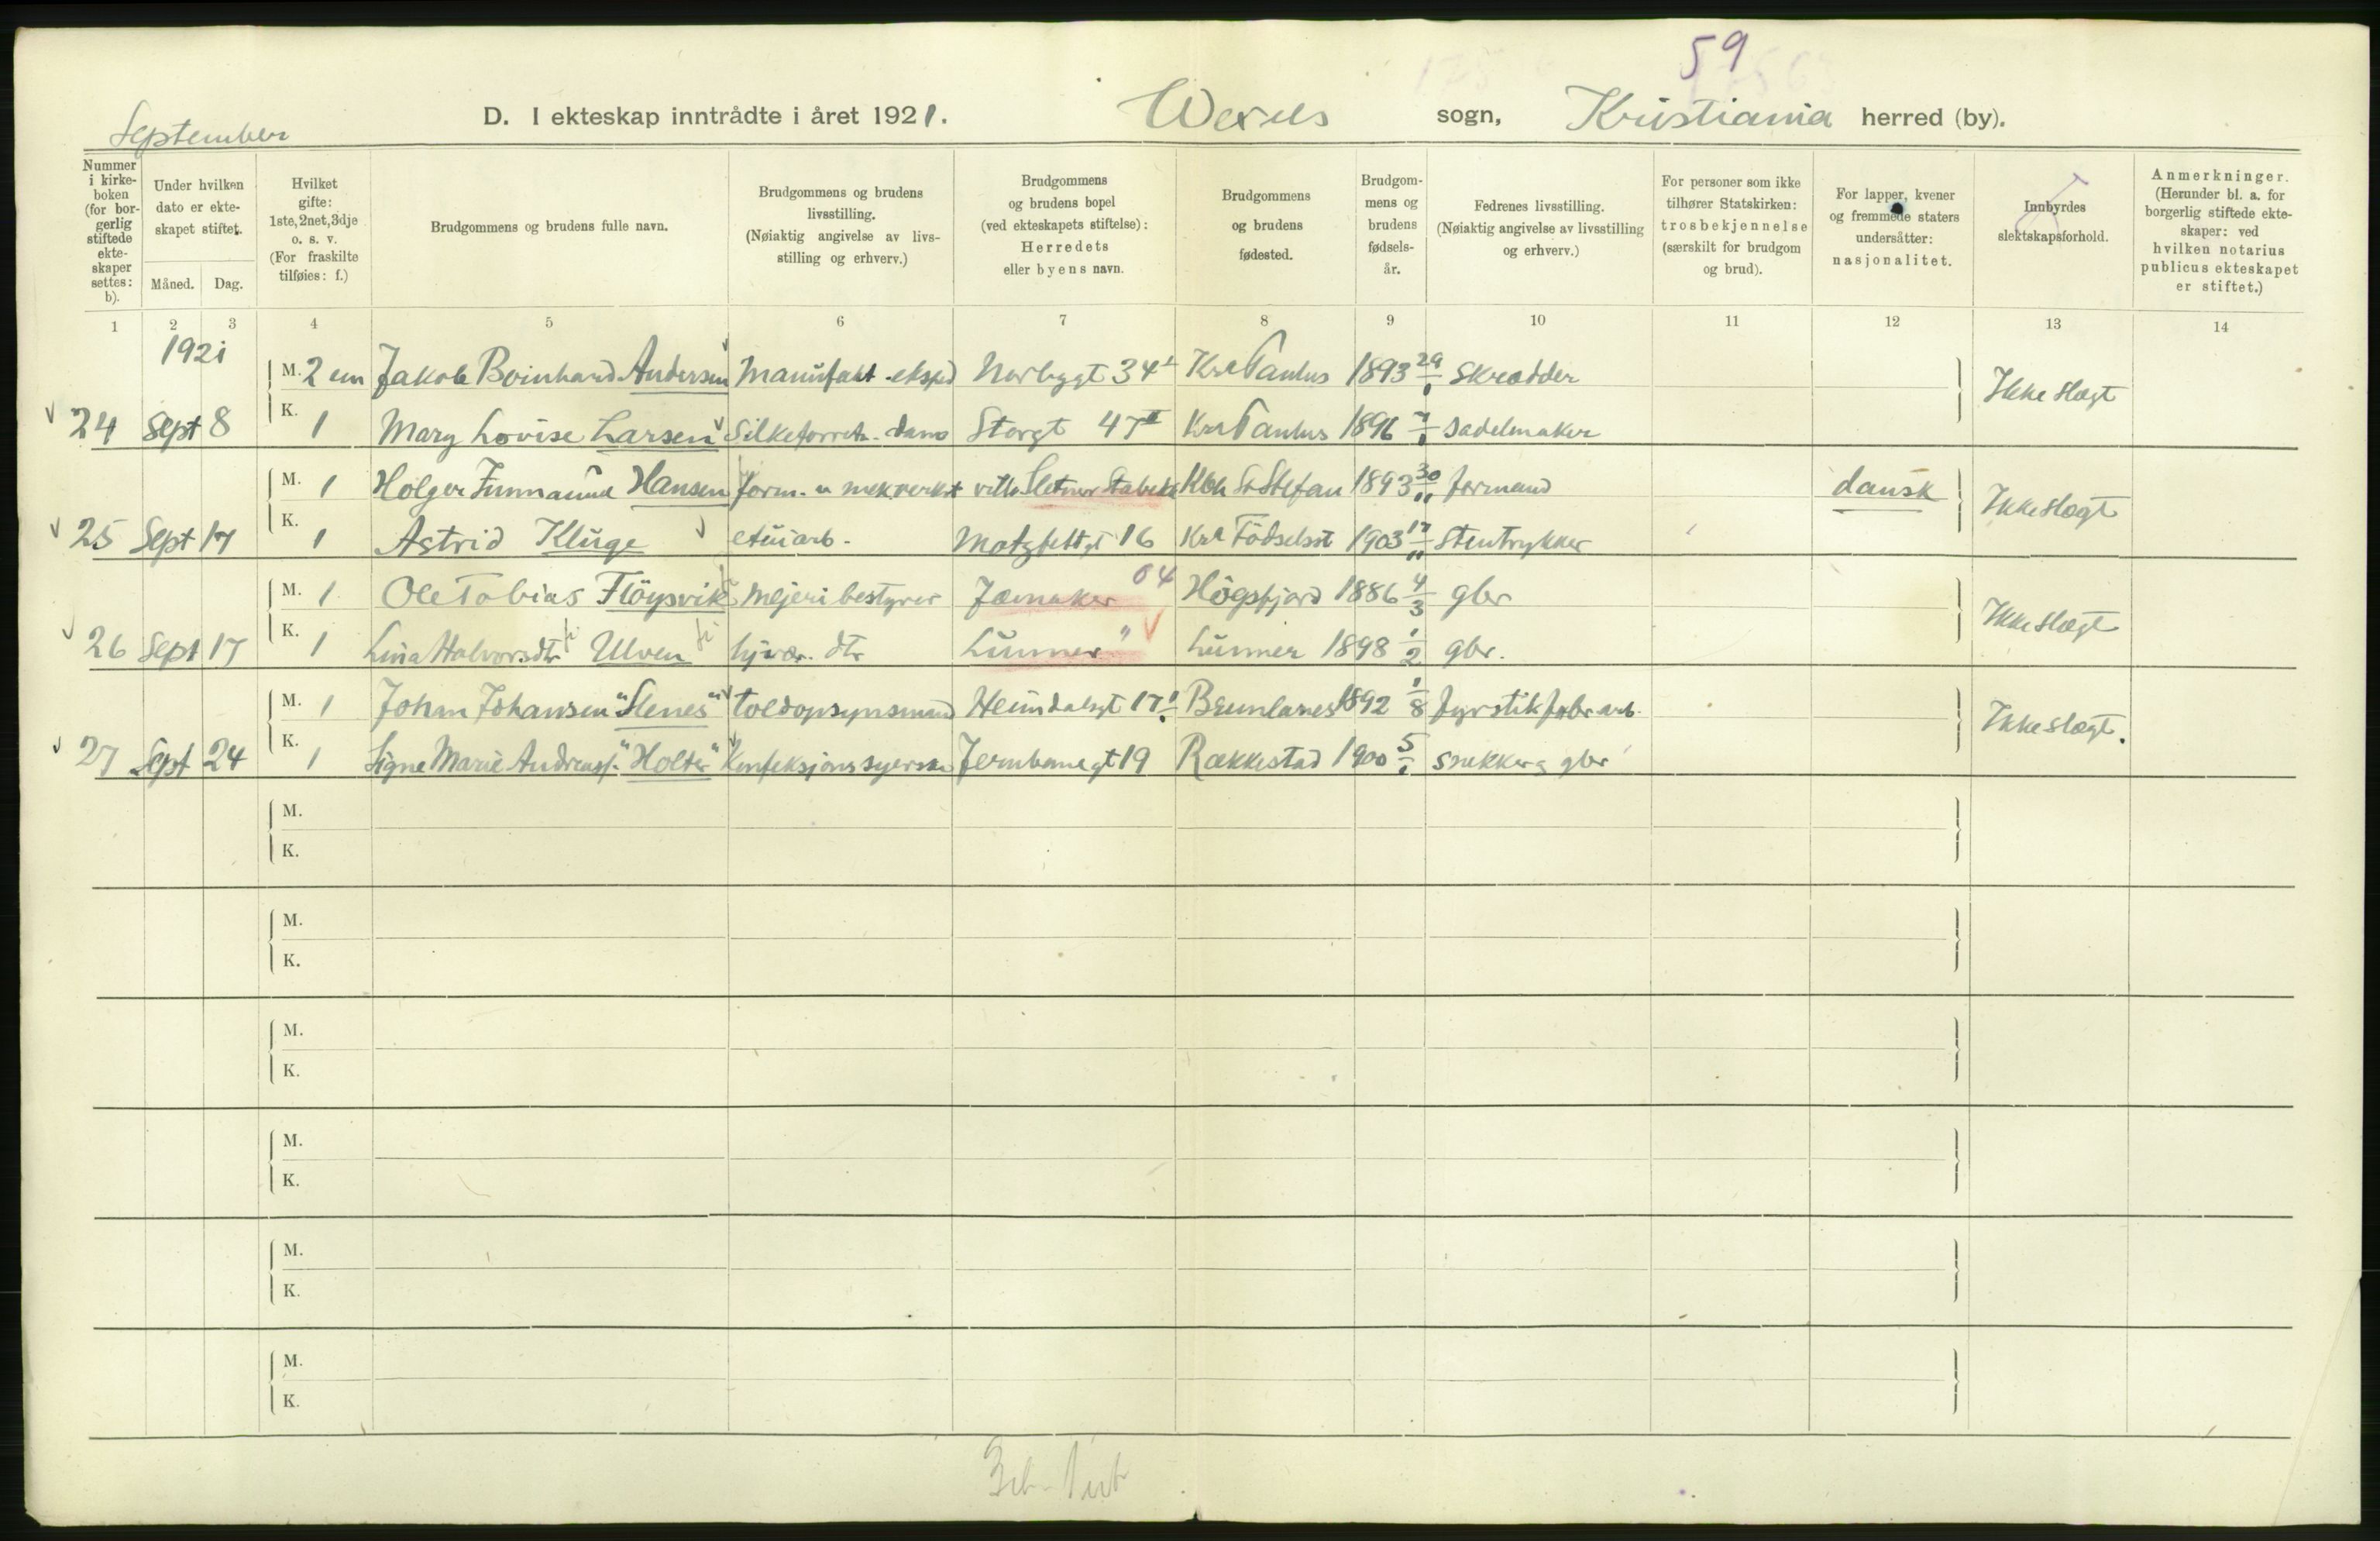 59
September D. I ekteskap inntrådte i året 1921. Wexels sogn, Kristiania herred (by).
Nummer i kirkeboken (for borgerlig stiftede ekteskaper settes: b).
Under hvilken dato er ekteskapet stiftet.
Måned. Dag.
Hvilket gifte: 1ste, 2net, 3dje o. s. v. (For fraskilte tilføies: f.)
Brudgommens og brudens fulle navn.
Brudgommens og brudens livsstilling. (Nøiaktig angivelse av livsstilling og erhverv.)
Brudgommens og brudens bopel (ved ekteskapets stiftelse): Herredets eller byens navn.
Brudgommens og brudens fødested.
Brudgommens og brudens fødselsår.
Fedrenes livsstilling. (Nøiaktig angivelse av livsstilling og erhverv.)
For personer som ikke tilhører Statskirken: trosbekjennelse (særskilt for brudgom og brud).
For lapper, kvener og fremmede staters undersåtter: nasjonalitet.
Innbyrdes slektskapsforhold.
Anmerkninger. (Herunder bl. a. for borgerlig stiftede ekteskaper: ved hvilken notarius publicus ekteskapet er stiftet.)
1 2 3 4 5 6 7 8 9 10 11 12 13 14
1921
M. 2 em Jakob Bernhard Andersen Manufakt.eksped Norbygt 34 Kra Paulus 1893 29/1 Skrædder
Ikke slægt
24 Sept 8 K. 1 Mary Lovise Larsen Silkeforretn. dame Storgt 47 II Kra Paulus 1896 Sadelmaker
M. 1 Holger Hansen form. v mek.verkst villa Sletner Stabekk Kbh St Stefan 1893 30/11 formand dansk
Ikke slægt
25 Sept 17 K. 1 Astrid Kluge etuiarb. Motzfeldtgt 16 Kra Födselsst 1903 17/11 Stentrykker
M. 1 Ole Tobias Flöysvik Mejeribestyrer Jævnaker 04 Högsfjord 1886 4/3 gbr
Ikke slægt
26 Sept 17 K. 1 Lina Halvorsdtr Ulven hjvær. dtr Lunner " Lunner 1898 1/2 gbr.
M. 1 Johan Johansen "Slenes" toldopsynsmand Heimdalsgt 17 Brunlanes 1892 1/8 fyrstikfabr arb.
Ikke slægt.
27 Sept 24 K. 1 Signe Marie Andreasf. "Holter" Konfeksjonssyerske Jernbanegt 19 Rækkestad 1900 5/1 snekker gbr
M.
K.
M.
K.
M.
K.
M.
K.
M.
K.
M.
K.